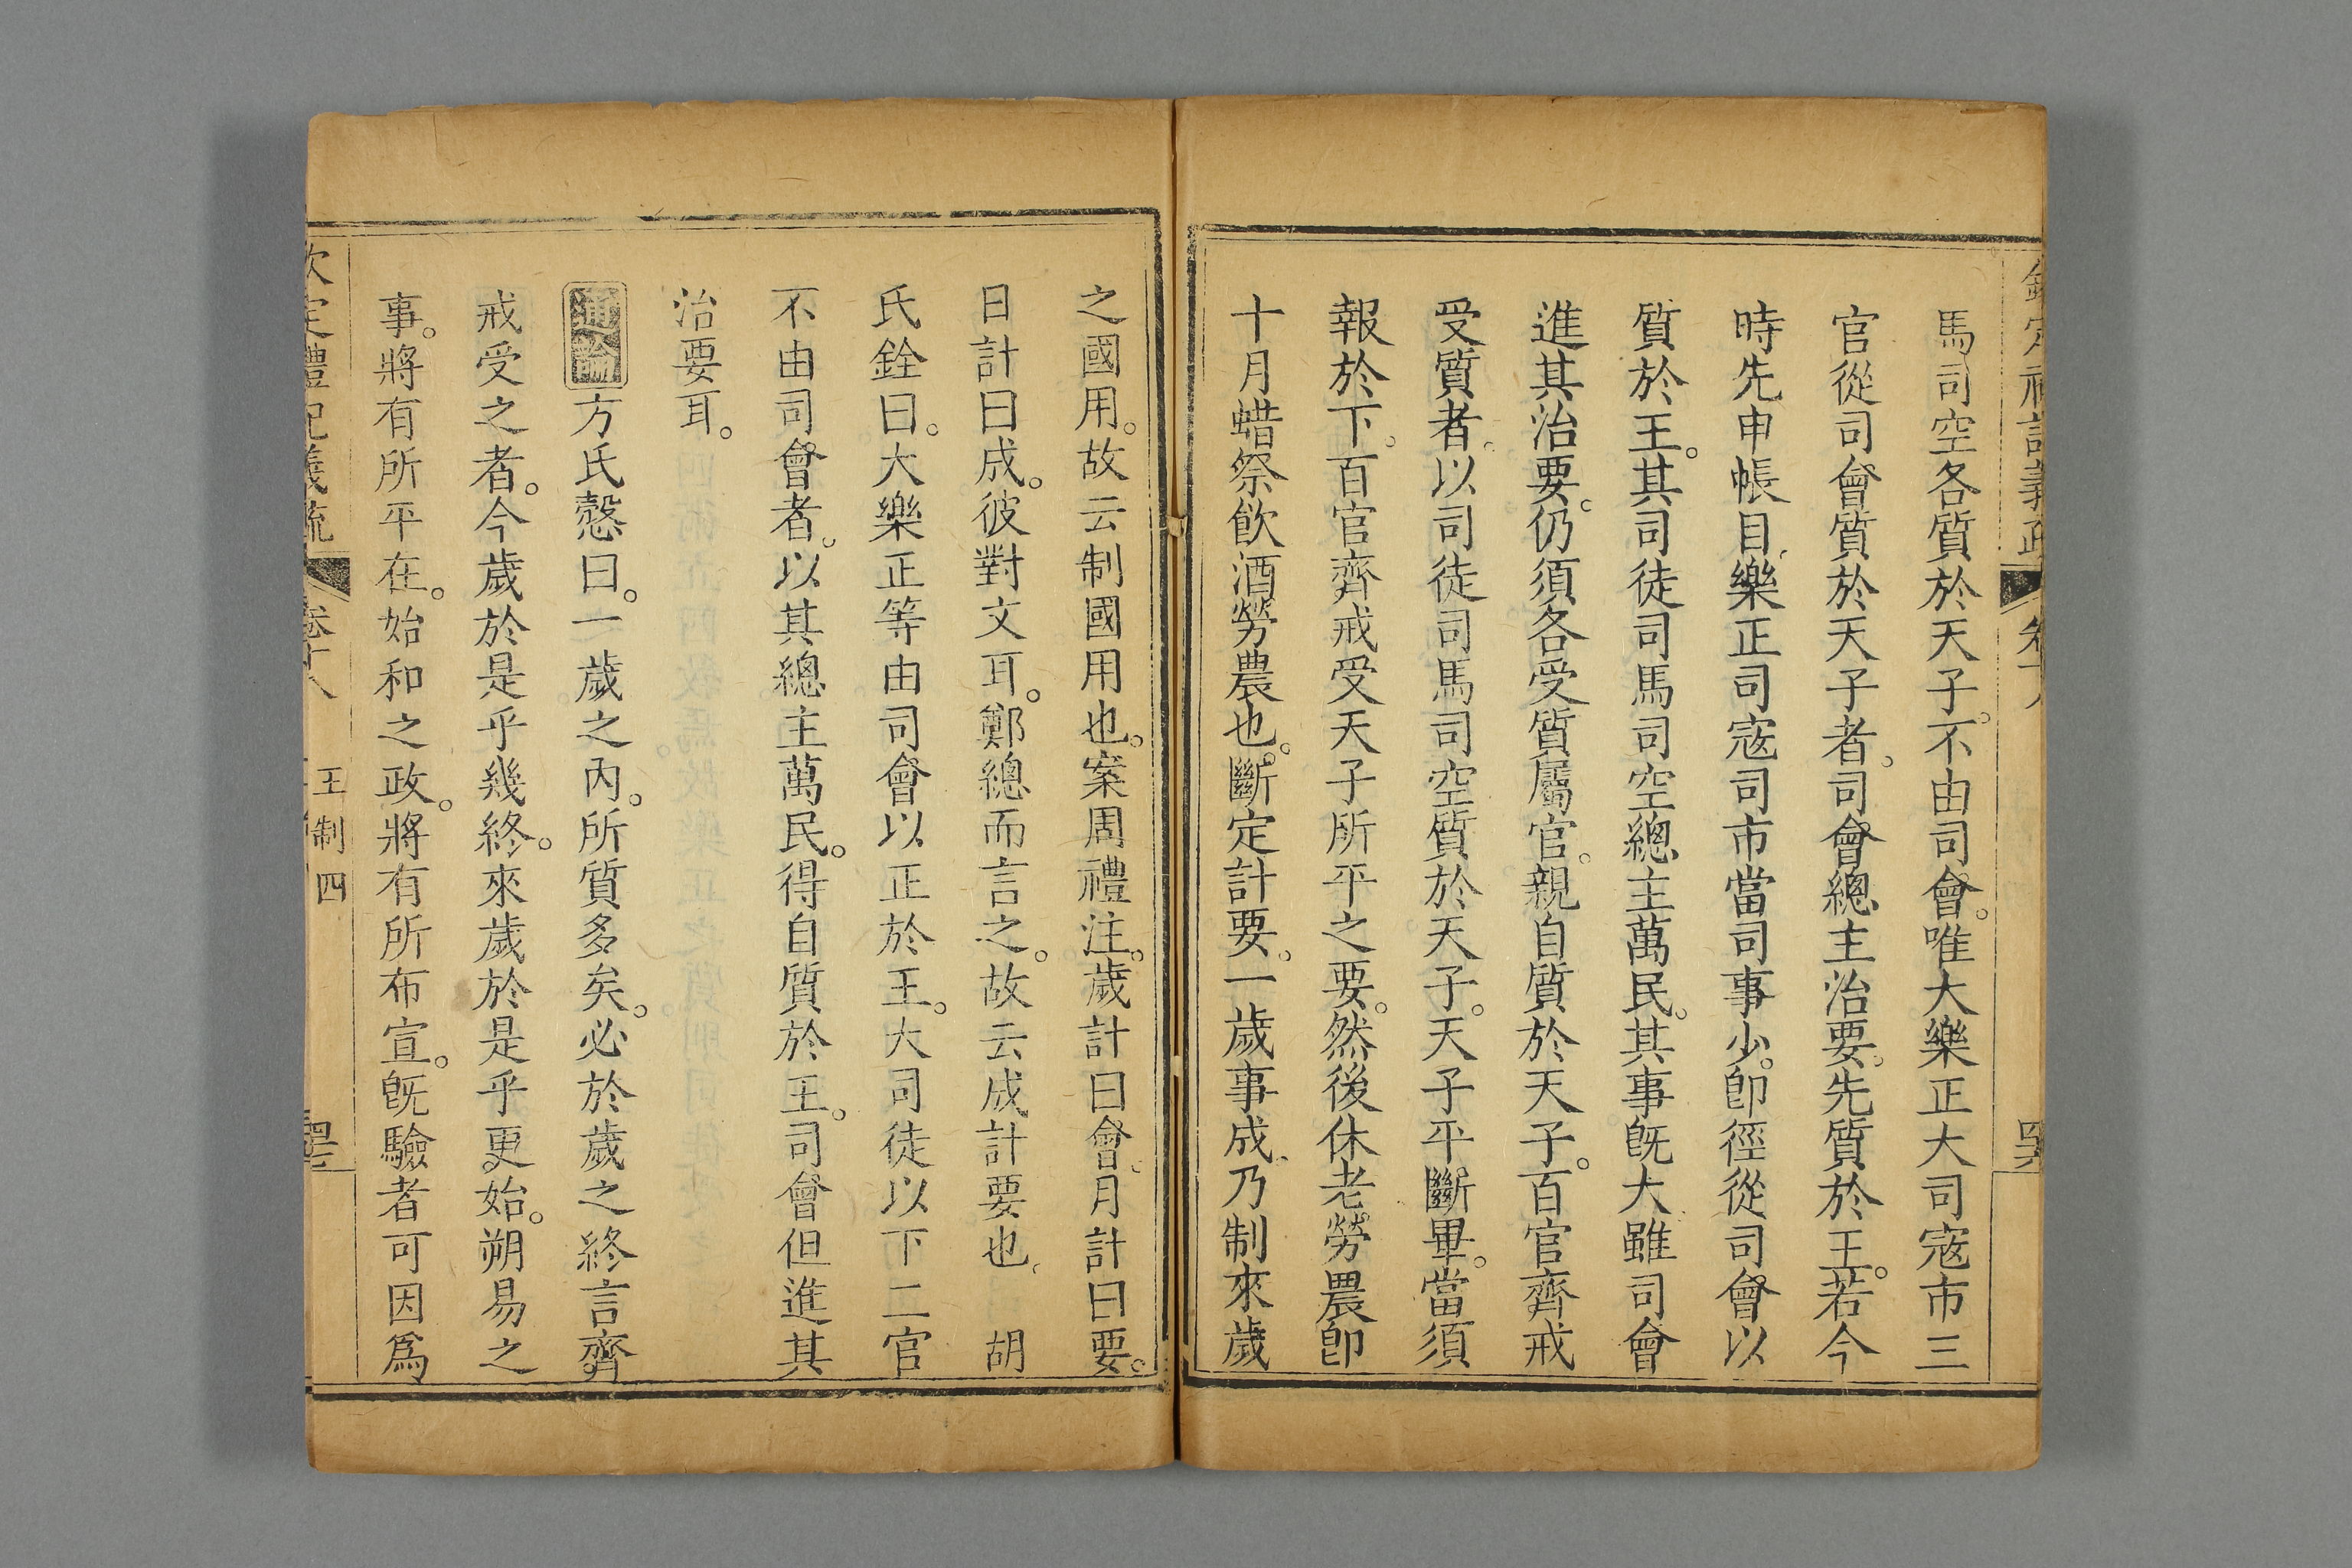 馬司空各質於天子。不由司會。唯大樂正大司寇市三
官從司會質於天子者。司會總主治要。先質於王。若今
時先申帳目。樂正司寇司市當司事少。卽徑從司會以
質於王。其司徒司馬司空總主萬民。其事旣大雖司會
進其治要。仍須各受質屬官。親自質於天子。百官齊戒
受質者。以司徒司馬司空質於天子。天子平斷畢。當須
報於下。百官齊戒受天子所平之要。然後休老勞農卽
十月蜡祭飮酒勞農也。斷定計要。一歲事成。乃制來歲
之國用。故云制國用也。案周禮注。歲計曰會。月計曰要。
日計曰成。彼對文耳。鄭總而言之。故云成計要也。 胡
氏銓曰。大樂正等由司會以正於王。大司徒以下二官
不由司會者。以其總主萬民。得自質於王。司會但進其
治要耳。
通論方氏慤曰。一歲之內。所質多矣。必於歲之終言齊
戒受之者。今歲於是乎幾終。來歲於是乎更始。朔易之
事。將有所平在。始和之政。將有所布宣。旣驗者可因爲
欽定禮記義疏 卷十八 王制四